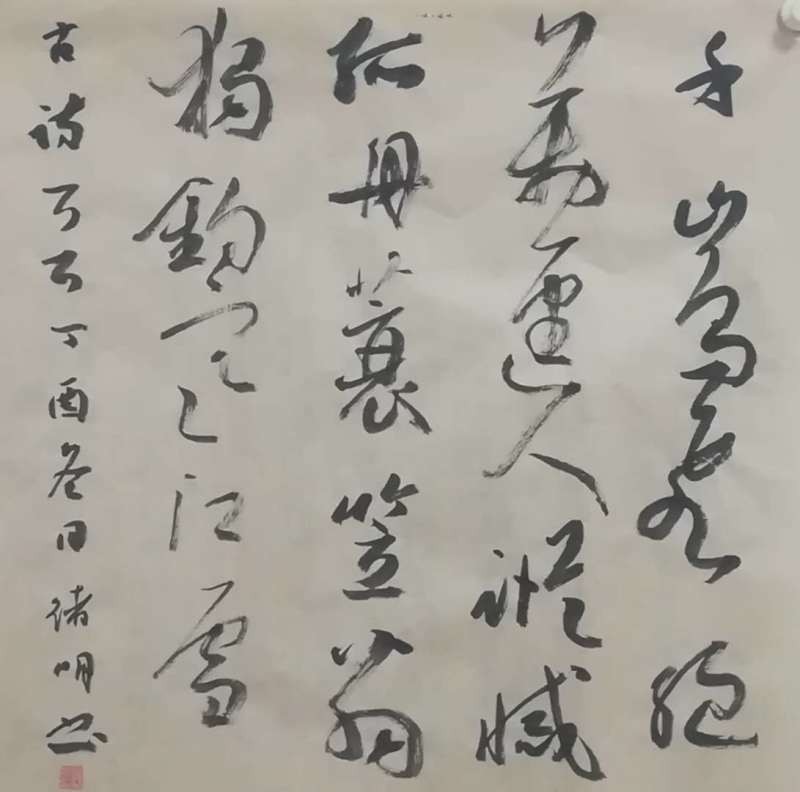 千山鳥飛絕
萬逕人蹤滅
孤舟蓑笠翁
獨釣寒江雪
古詩丁酉冬日明书